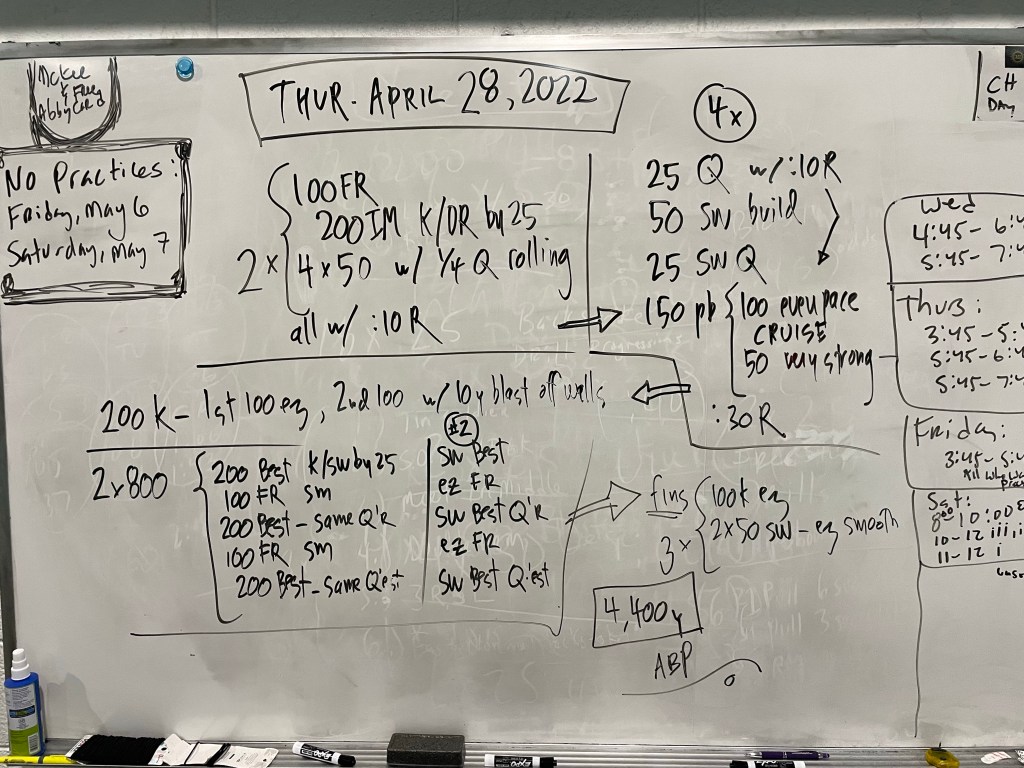 No Practices:
Friday, May 6
Saturday, May 7
THUR. APRIL 28, 2022
2x
100 FR
200 IM K/DR by 25
4x50 w/ 1/4 Q rolling
all w/ :10 R
4x
25 Q w/ :10R
50 SW build
25 SW Q
150 pb
100 even pace
CRUISE
50 very strong
:30 R
200 K - 1st 100 ez, 2nd 100 w/ 10y blast off walls
2x800
200 Best K/SW by 25
100 FR SM
200 Best - same Q'R
100 FR SM
200 Best - same Q'est
#2
SW Best
ez FR
SW Best Q'R
ez FR
SW Best Q'est
fins
3x
100K ez
2x50 SW - ez smooth
4,400y
ABP
CH
DAY
Wed
4:45-
5:45-
Thurs:
3:45-5:
5:45-6:
5:45-7:
Friday:
3:45-5:
Sat:
8:00-10:00
10-12
11-12 i
EXPO
EXPO
EXPO